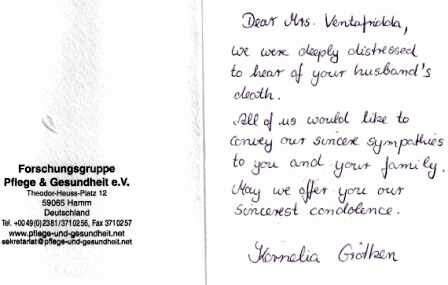 Forschungsgruppe
Pflege & Gesundheit e.V.
Theodor-Heuss-Platz 12
59065 Hamm
Deutschland
Tel. +0049(0)2381/3710256, Fax 3710257
www.pflege-und-gesundheit.net
sekretariat@pflege-und-gesundheit.net
Dear Mrs. Ventafridda,
we were deeply distressed
to hear of your husband's
death.
All of us would like to
convey our sincere sympathies
to you and your family.
May we offer you our
sincerest condolence.
Kornelia Götken